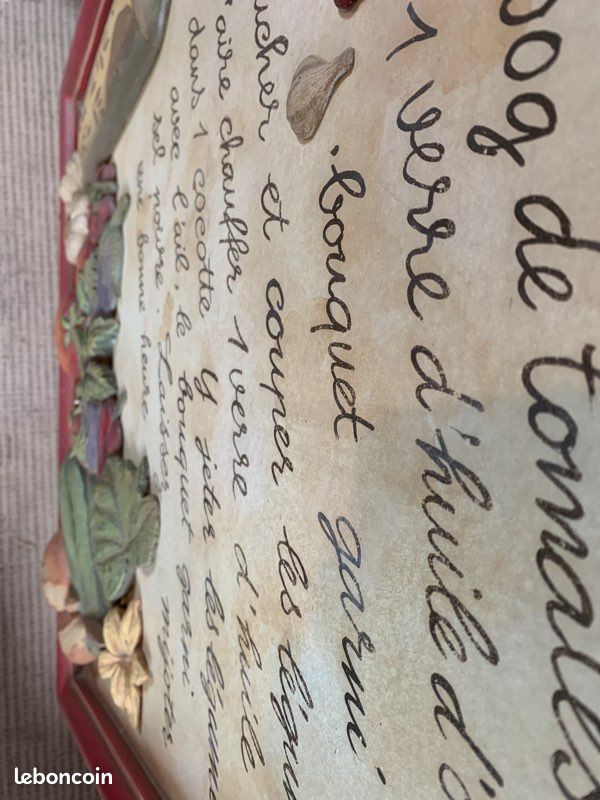 00g de tomates
1 verre d'huile d'o
. bouquet garni
ucher et couper les légum
aire chauffer 1 verre d'huile
dans 1 cocotte Y jeter les légume
avec l'ail, le bouquet garni
sel poivre. Laissez mijoter
une bonne heure
leboncoin